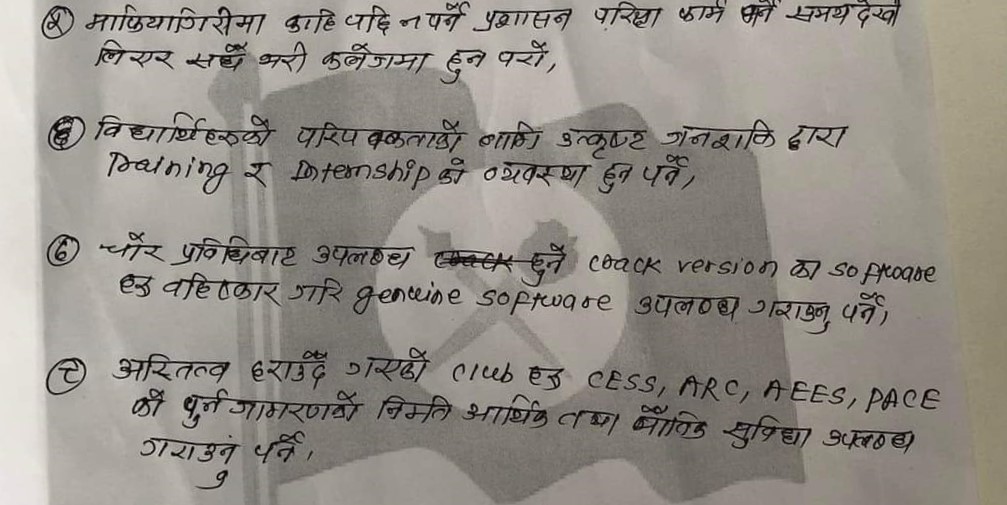 (५) माफियागिरीमा काहि पछि नपर्ने प्रशासन परिक्षा फार्म भर्ने समय देखी
लिएर सधैं भरी कलेजमा हुन पर्ने,
विद्यार्थिहरुको परिपक्कताको लागि उत्कृष्ट जनशक्ति द्वारा
Training र Internship को व्यवस्था हुन पर्ने,
चोर प्रविधिबाट उपलब्ध हुने crack version का software
हरु वहिष्कार गरि genuine software उपलब्ध गराउनु पर्ने,
अस्तित्व हराउँदै गएको club हरु CESS, ARC, AEES, PACE
को पुर्न जागरणको निम्ति आर्थिक तथा भौतिक सुविधा उपलब्ध
गराउनु पर्ने,